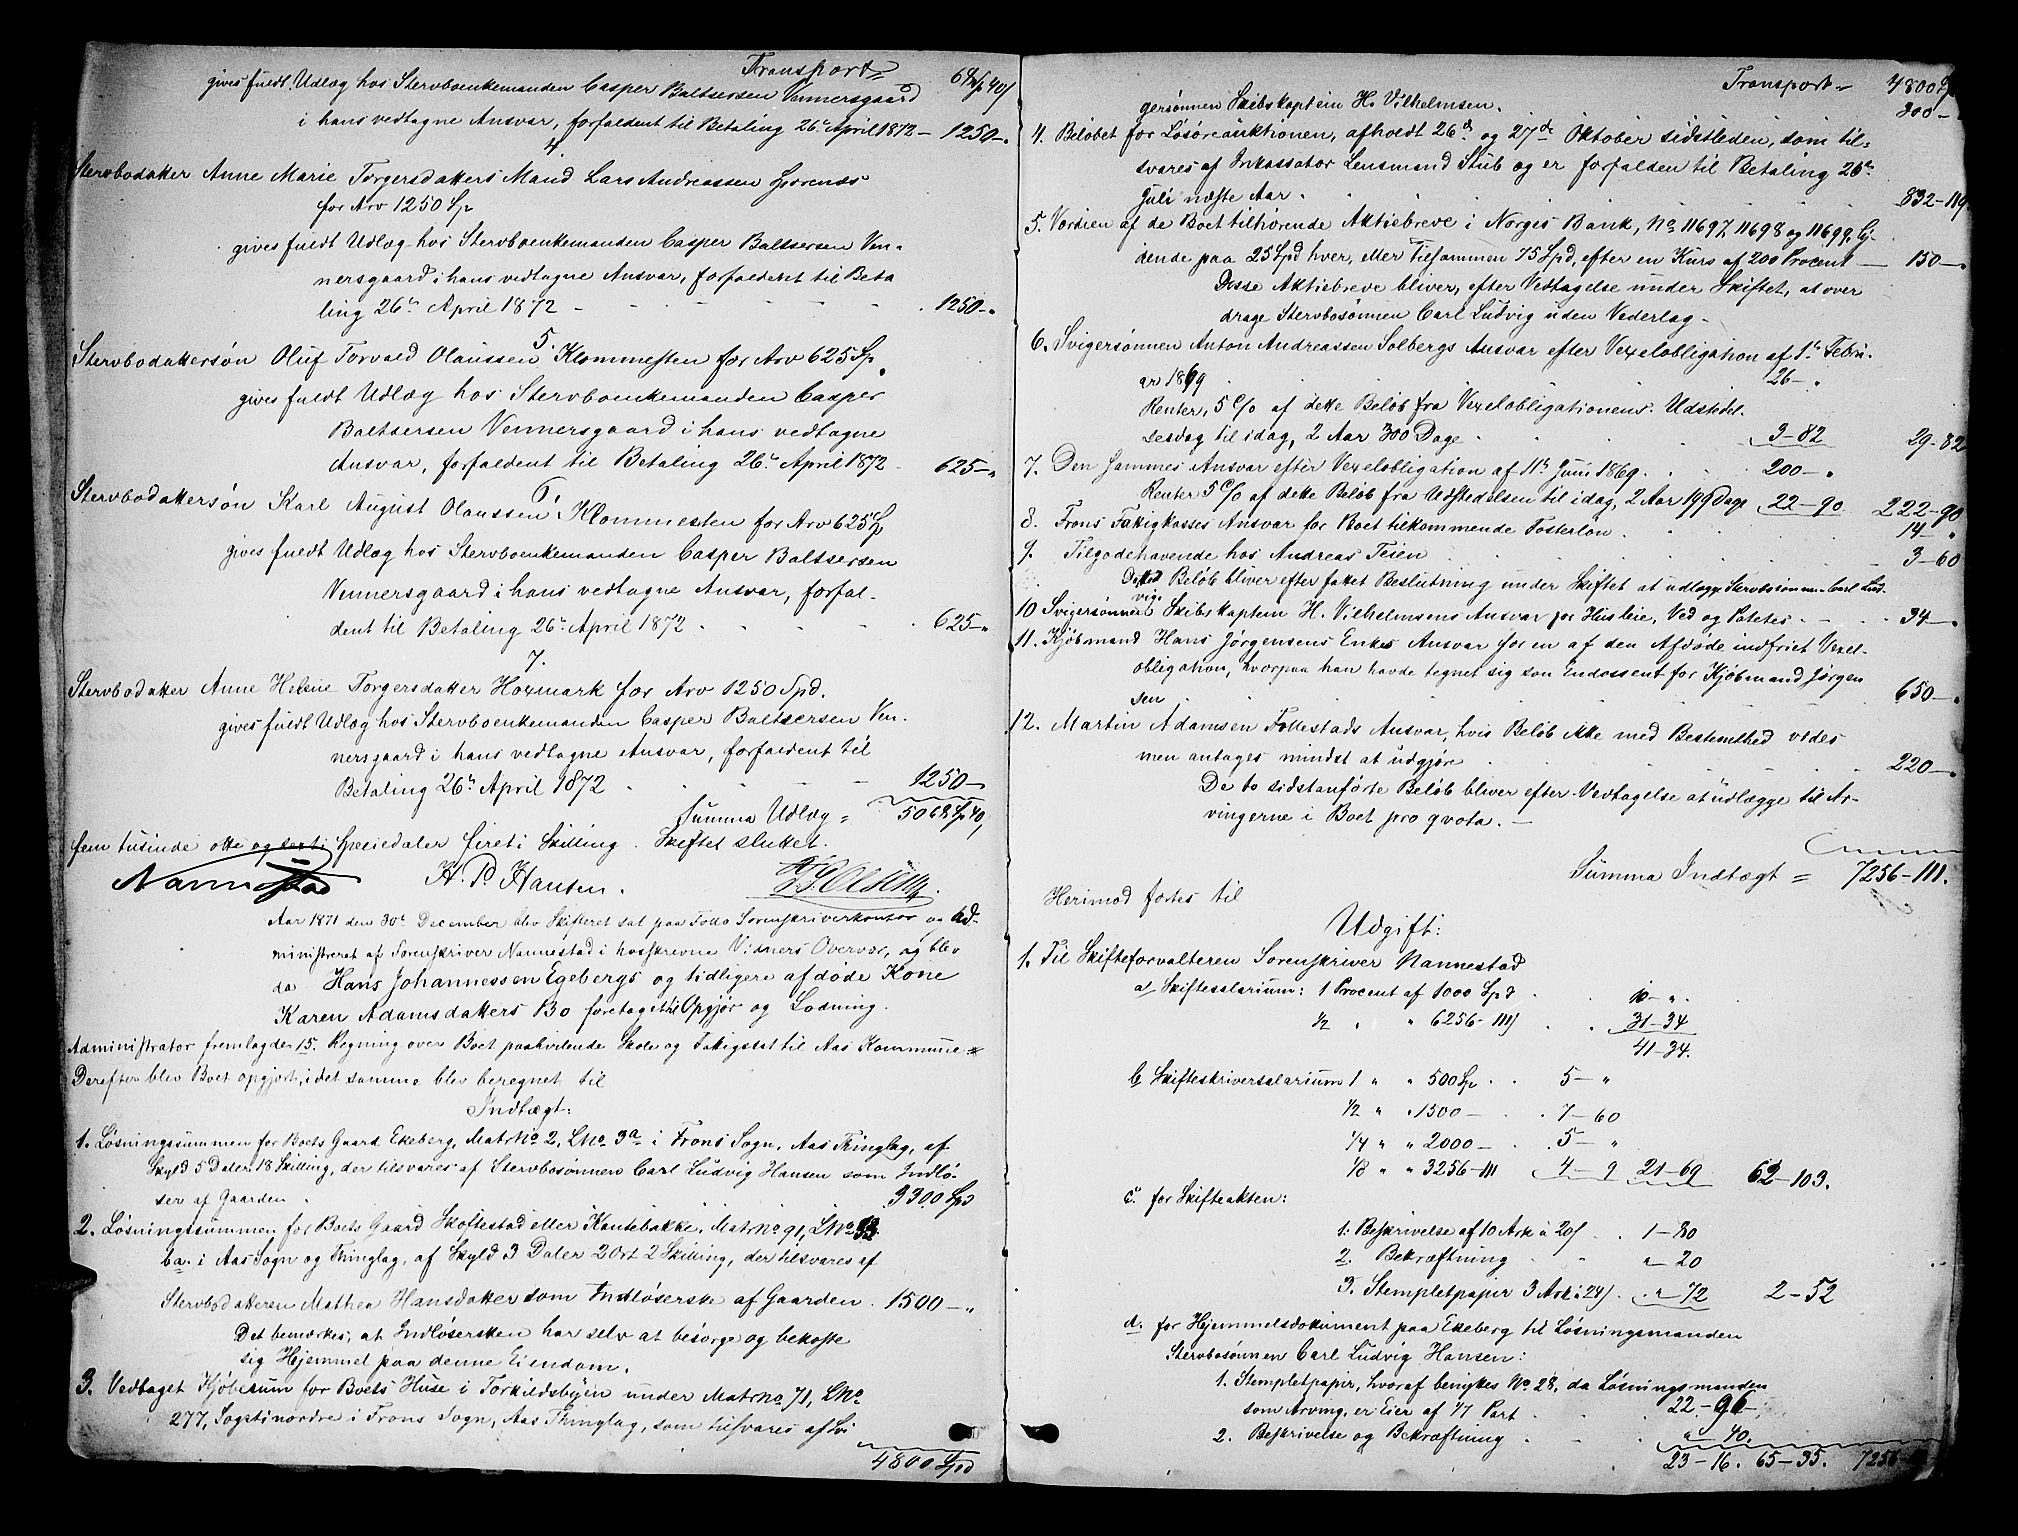 Transport = 68 Sp 40 s
gives fuldt Udlæg hos Stervboenkemanden Casper Baltsersen Vennersgaard
i hans vedtagne Ansvar, forfaldent til Betaling 26de April 1872 — 1250 — "
4.
Stervbodatter Anne Marie Torgersdatters Mand Lars Andreassen
for Arv 1250 Sp
gives fuldt Udlæg hos Stervboenkemanden Casper Baltsersen Ven-
nersgaard i hans vedtagne Ansvar, forfaldent til Beta
ling 26de April 1872 - 1250 — "
5.
Stervbodattersøn Oluf Torvald Olaussen Klommesten for Arv 625 Sp
gives fuldt Udlæg hos Stervboenkemanden Casper
Baltsersen Vennersgaard i hans vedtagne
Ansvar, forfaldent til Betaling 26de April 1872 - 625 — "
6.
Stervbodattersøn Karl August Olaussen Klommesten for Arv 625 Sp
gives fuldt Udlæg hos Stervboenkemanden Casper Baltsersen
Vennersgaard i hans vedtagne Ansvar, forfal-
dent til Betaling 26de April 1872 - 625 — "
7.
Stervbodatter Anne Helene Torgersdatter Hoxmark for Arv 1250 Spd.
gives fuldt Udlæg hos Stervboenkemanden Casper Baltsersen Ven-
nersgaard i hans vedtagne Ansvar, forfaldent til
Betaling 26de April 1872 - 1250 —
Summa Udlæg = 5068 Sp 40 s
fem tusinde otte og sexti Speciedaler fireti Skilling. Skiftet sluttet.
Nannestad H. P. Hansen. Olsen.
Aar 1871 den 30te December blev Skifteret sat paa Follo Sorenskriverkontor og ad-
ministreret af Sorenskriver Nannestad i hosskrevne Vidners Overvær, og blev
da Hans Johannessen Egebergs og tidligere afdøde Kone
Karen Adamsdatters Bo foretaget til Opgjør og Lodning.
Administrator fremlagde 15. Regning over Boet paahvilende Skole og Fattigskat til Aas Kommune
Derefter blev Boet opgjort, idet samme blev beregnet til
Indtægt:
1. Løsningssummen for Boets Gaard Ekeberg, Matr No 2, L No 3a i Frons Sogn, Aas Thinglag, af
Skyld 5 Daler 18 Skilling, der tilsvares af Stervbosønnen Carl Ludvig Hansen som Indlø-
ser af Gaarden . 3300 Spd
2. Løsningssummen for Boets Gaard Skoftestad eller Kantebakke, Matr No 91, L No
ba. i Aas Sogn og Thinglag, af Skyld 3 Daler 2 Ort 2 Skilling, der tilsvares af
Stervbodatteren Mathea Hansdatter som Indløserske af Gaarden . 1500 — "
Det bemærkes, at Indløsersken har selv at besørge og bekoste
sig Hjemmel paa denne Eiendom.
3. Vedtaget Kjøbesum for Boets Huse i Torkildsbyen under Matr No 71, L No
277, Sogstinordre i Frons Sogn, Aas Thinglag, som tilsvares af Svi
4800 Spd
Transport = 4800 Sp
gersønnen Skibskaptein H. Vilhelmsen. 300 —
4. Beløbet for Løsøreauktionen, afholdt 26de og 27de Oktober sidstleden, som til-
svares af Inkassator Lensmand Stub og er forfalden til Betaling 26de
Juli næste Aar . 832 - 119
5. Værdien af de Boet tilhørende Aktiebreve i Norges Bank, No 11697, 11698 og 11699, ly-
dende paa 25 Spd hver, eller tilsammen 75 Spd, efter en Kurs af 200 Procent — 150 — "
Disse Aktiebreve bliver, efter Vedtagelse under Skiftet, at over
drage Stervbosønnen Carl Ludvig uden Vederlag -
6. Svigersønnen Anton Andreassen Solbergs Ansvar efter Vexelobligation af 1te Febru-
ar 1869 . 26 — "
Renter, 5 % af dette Beløb fra Vexelobligationens Udstedel-
sesdag til idag, 2 Aar 300 Dage . 3 - 82 29 - 82
7. Den Sammes Ansvar efter Vexelobligation af 11te Juni 1869. 200 — "
Renter 5 % af dette Beløb fra Udstedelsen til idag, 2 Aar 199 Dage 22 - 90 222 - 90
8. Frons Fattigkasses Ansvar for Boet tilkommende Fosterløn . 14 — "
9. Tilgodehavende hos Andreas Teien . 3 - 60
Dette Beløb bliver efter fattet Beslutning under Skiftet at udlægge Stervbosønnen Carl Lud-
vig.
10 Svigersønnen Skibskaptein H. Vilhelmsens Ansvar for Husleie, Ved og Potetes - 34 — "
11. Kjøbmand Hans Jørgensens Enkes Ansvar for en af den Afdøde indfriet Vexel-
obligation, hvorpaa han havde tegnet sig som Endossent for Kjøbmand Jørgen
sen . 650 — "
12. Martin Adamsen Follestads Ansvar, hvis Beløb ikke med Bestemthed vides
men antages mindst at udgjøre . 220 — "
De to sidstanførte Beløb bliver efter Vedtagelse at udlægge til Ar-
vingerne i Boet pro qvota. —
Summa Indtægt = 7256 - 111.
Herimod føres til
Udgift:
1. Til Skifteforvalteren Sorenskriver Nannestad
a, Skiftesalarium: 1 Procent af 1000 Spd . 10 - "
1/2 " " 6256 - 111 s . 31 - 34
41 - 34.
b, Skifteskriversalarium 1 " " 500 Sp . 5 — "
1/2 " " 1500 — . 7 - 60
1/4 " " 2000 — . 5 — "
1/8 " " 3256 - 111 4 - 9 21 - 69 62 - 103.
c. for Skifteakten:
1. Beskrivelse af 10 Ark à 20 s . 1 - 80
2. Bekræftning " - 20
3. Stempletpapir 3 Ark à 24 s . " - 72 2 - 52
d. for Hjemmelsdokument paa Ekeberg til Løsningsmanden
Stervbosønnen Carl Ludvig Hansen:
1. Stempletpapir, hvoraf benyttes No 28, da Løsningsmanden
som Arving, er Eier af 1/7 Part . 22 - 96
2. Beskrivelse og Bekræftning . " - 40.
23 - 16. 65 - 35. 7256 -